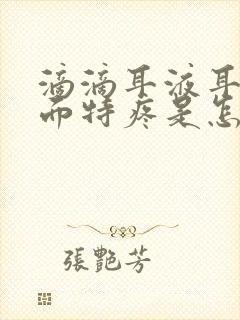 滴滴耳液耳
而特疼是怎
張艷芳